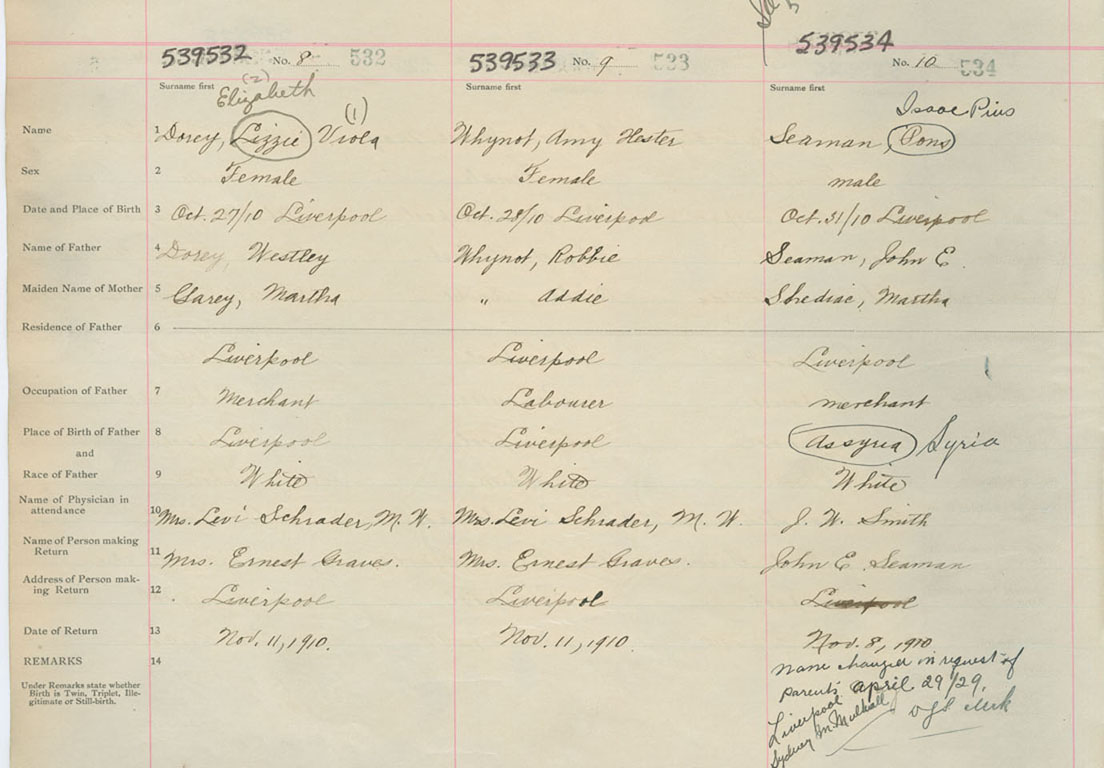 539532 No. 8 532 539533 No. 9 533 539534 No. 10 534
Surname first (2) Surname first Surname first
Elizabeth (1) Isaac Pius
Name 1 Dorey, Lizzie Viola Whynot, Amy Hester Seaman, Pons
Sex 2 Female Female male
Date and Place of Birth 3 Oct. 27/10 Liverpool Oct. 28/10 Liverpool Oct. 31/10 Liverpool
Name of Father 4 Dorey, Westley Whynot, Robbie Seaman, John E.
Maiden Name of Mother 5 Carey, Martha " Addie Shediac, Martha
Residence of Father 6
Liverpool Liverpool Liverpool
Occupation of Father 7 Merchant Labourer merchant
Place of Birth of Father 8 Liverpool Liverpool Assyria Syria
and
Race of Father 9 White White White
Name of Physician in
attendance 10 Mrs. Levi Schrader, M. W. Mrs. Levi Schrader, M. W. J. W. Smith
Name of Person making
Return 11 Mrs. Ernest Graves. Mrs. Ernest Graves. John E. Seaman
Address of Person mak-
ing Return 12 Liverpool Liverpool Liverpool
Date of Return 13 Nov. 11, 1910. Nov. 11, 1910. Nov. 8, 1910.
REMARKS 14
Under Remarks state whether
Birth is Twin, Triplet, Ille-
gitimate or Still-birth.
name changed on request of
parents April 29/29.
Liverpool
Sydney M. Mulhall